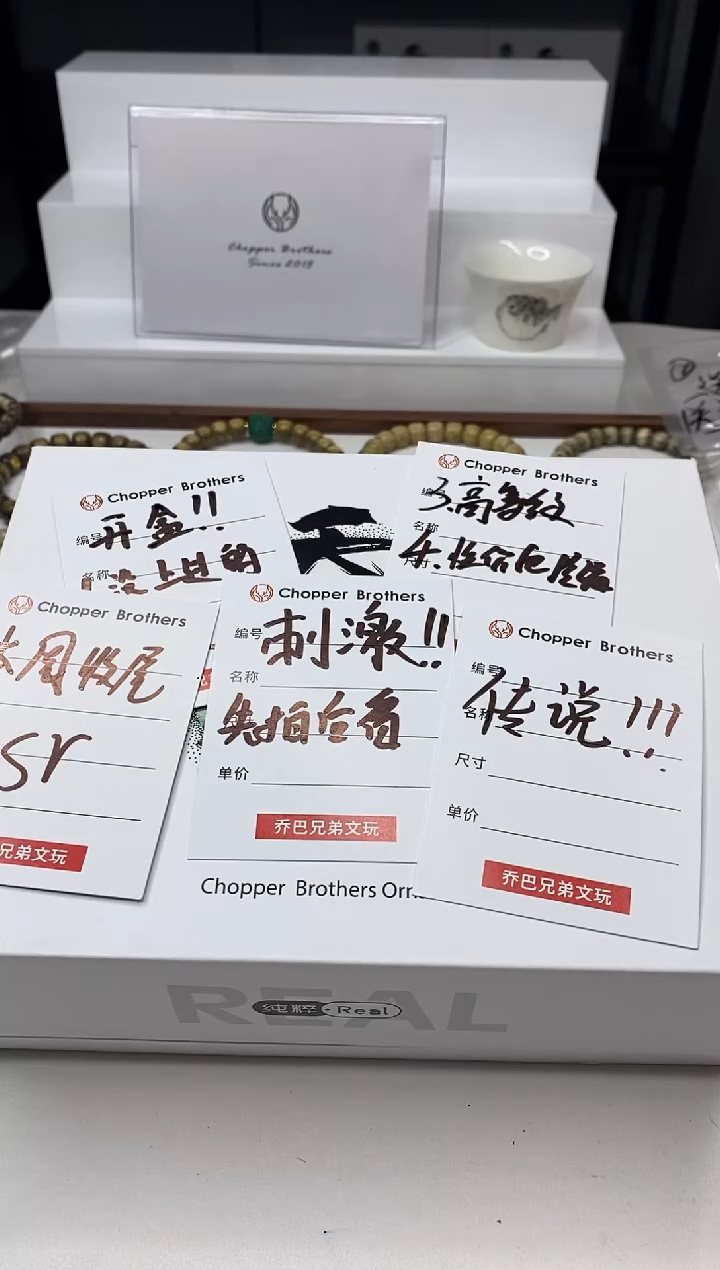 Chopper Brothers
Since 2018
Chopper Brothers
编号
开盒!!
名称
没上过的
Chopper Brothers
高多纹
名称
Chopper Brothers
周收尾
sr
兄弟文玩
Chopper Brothers
编号
刺激!!
名称
失拍合看
单价
乔巴兄弟文玩
Chopper Brothers
编号
名称
传说!!!
尺寸
单价
乔巴兄弟文玩
Chopper Brothers Orn
REAL
纯粹·Real